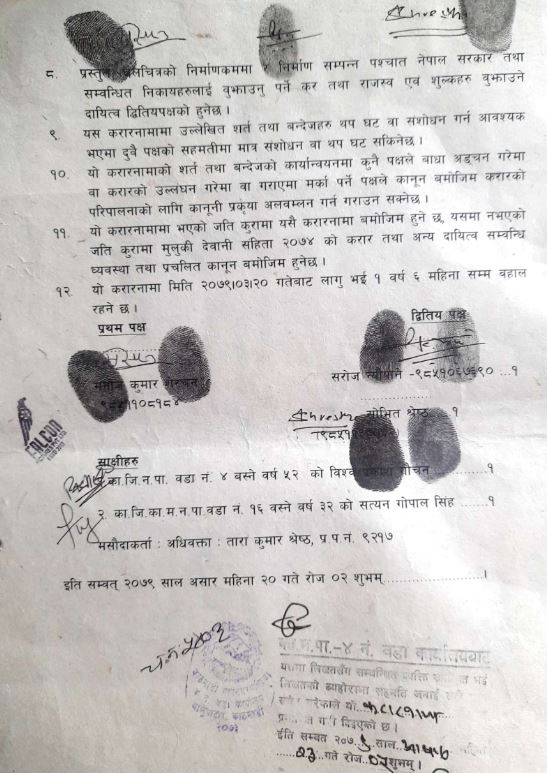 ८. प्रस्तुत चलचित्रको निर्माणक्रममा र निर्माण सम्पन्न पश्चात नेपाल सरकार तथा
सम्वन्धित निकायहरुलाई वुझाउनु पर्ने कर तथा राजस्व एवं शुल्कहरु वुझाउने
दायित्व द्वितियपक्षको हुनेछ ।
९. यस करारनामामा उल्लेखित शर्त तथा बन्देजहरु थप घट वा संशोधन गर्न आवश्यक
भएमा दुवै पक्षको सहमतीमा मात्र संशोधन वा थप घट सकिनेछ ।
१०. यो करारनामाको शर्त तथा बन्देजको कार्यान्वयनमा कुनै पक्षले बाधा अड्चन गरेमा
वा करारको उल्लंघन गरेमा वा गराएमा मर्का पर्ने पक्षले कानून बमोजिम करारको
परिपालनाको लागि कानूनी प्रकृया अवलम्वन गर्न गराउन सक्नेछ ।
११. यो करारनामामा भएको जति कुरामा यसै करारनामा बमोजिम हुने छ, यसमा नभएको
जति कुरामा मुलुकी देवानी संहिता २०७४ को करार तथा अन्य दायित्व सम्वन्धि
व्यवस्था तथा प्रचलित कानून बमोजिम हुनेछ ।
१२. यो करारनामा मिति २०७९।०३।२० गतेबाट लागु भई १ वर्ष ६ महिना सम्म वहाल
रहने छ ।
प्रथम पक्ष
द्वितिय पक्ष
कुमार
सरोज न्यौपाने -९८५१०६५६९० ...१
श्रेष्ठ १
FALCON
साक्षीहरु
१. का.जि.न.पा. वडा नं. ४ बस्ने वर्ष ५२ को विश्व गौचन ..........१
२. का.जि.का.म.न.पा.वडा नं. १६ वस्ने वर्ष ३२ को सत्यन गोपाल सिंह .......१
मसौदाकर्ता : अधिवक्ता : तारा कुमार श्रेष्ठ, प्र.प.नं. ९२१७
इति सम्वत् २०७९ साल असार महिना २० गते रोज ०२ शुभम्...................।
का.म.न.पा.-४ नं. वडा कार्यालयबाट
यसमा लिखतसँग सम्वन्धित व्यक्ति भई
लिखतको व्यहोरामा सहमति जनाई
गरी दिइएको छ ।
ईति सम्वत २०७ साल
२३ गते रोज ०२ शुभम् ।